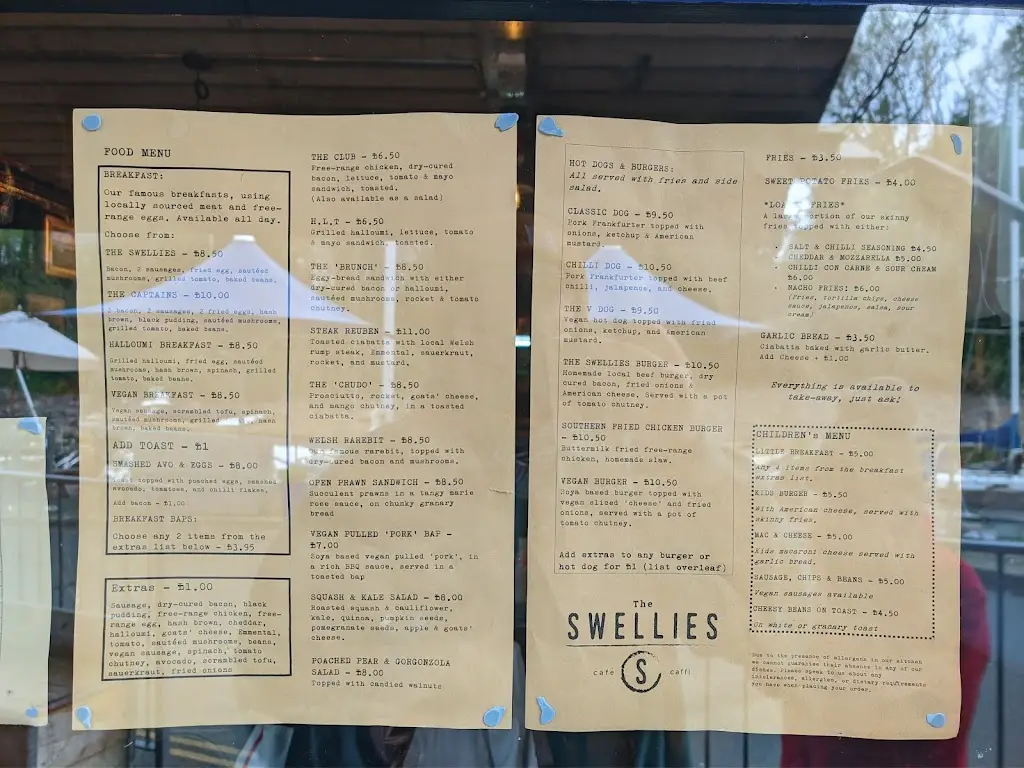 FOOD MENU
BREAKFAST:
Our famous breakfasts, using
locally sourced meat and free-
range eggs. Available all day.
Choose from:
THE SWELLIES - £8.50
Bacon, 2 sausages, fried egg, sautéed
mushrooms, grilled tomato, baked beans.
THE CAPTAINS - £10.00
bacon, 2 sausages, 2 fried eggs, hash
brown, black pudding, sautéed mushrooms,
grilled tomato, baked beans.
HALLOUMI BREAKFAST - £8.50
Grilled halloumi, fried egg, sautéed
mushrooms, hash brown, spinach, grilled
tomato, baked beans.
VEGAN BREAKFAST - £8.50
Vegan sausage, scrambled tofu, spinach,
sautéed mushrooms, grilled hash
brown, baked beans.
ADD TOAST - £1
SMASHED AVO & EGGS - £8.00
Toast topped with poached eggs, smashed
avocado, tomatoes, and chilli flakes.
Add bacon - £1.00
BREAKFAST BAPS:
Choose any 2 items from the
extras list below - £3.95
Extras - £1.00
Sausage, dry-cured bacon, black
pudding, free-range chicken, free-
range egg, hash brown, cheddar,
halloumi, goats' cheese, Emmental,
tomato, sautéed mushrooms, beans,
vegan sausage, spinach, tomato
chutney, avocado, scrambled tofu,
sauerkraut, fried onions
THE CLUB - £6.50
Free-range chicken, dry-cured
bacon, lettuce, tomato & mayo
sandwich, toasted.
(Also available as a salad)
H.L.T - £6.50
Grilled halloumi, lettuce, tomato
& mayo sandwich, toasted.
THE 'BRUNCH' - £8.50
Eggy-bread sandwich with either
dry-cured bacon or halloumi,
sautéed mushrooms, rocket & tomato
chutney.
STEAK REUBEN - £11.00
Toasted ciabatta with local Welsh
rump steak, Emmental, sauerkraut,
rocket, and mustard.
THE 'CRUDO' - £8.50
Prosciutto, rocket, goats' cheese,
and mango chutney, in a toasted
ciabatta.
WELSH RAREBIT - £8.50
Our famous rarebit, topped with
dry-cured bacon and mushrooms.
OPEN PRAWN SANDWICH - £8.50
Succulent prawns in a tangy marie
rose sauce, on chunky granary
bread
VEGAN PULLED 'PORK' BAP -
£7.00
Soya based vegan pulled 'pork', in
a rich BBQ sauce, served in a
toasted bap
SQUASH & KALE SALAD - £8.00
Roasted squash & cauliflower,
kale, quinoa, pumpkin seeds,
pomegranate seeds, apple & goats'
cheese.
POACHED PEAR & GORGONZOLA
SALAD - £8.00
Topped with candied walnuts
HOT DOGS & BURGERS:
All served with fries and side
salad.
CLASSIC DOG - £9.50
Pork Frankfurter topped with
onions, ketchup & American
mustard.
CHILLI DOG - £10.50
Pork Frankfurter topped with beef
chilli, jalapenos, and cheese.
THE V DOG - £9.50
Vegan hot dog topped with fried
onions, ketchup, and American
mustard.
THE SWELLIES BURGER - £10.50
Homemade local beef burger, dry
cured bacon, fried onions &
American cheese. Served with a pot
of tomato chutney.
SOUTHERN FRIED CHICKEN BURGER
- £10.50
Buttermilk fried free-range
chicken, homemade slaw.
VEGAN BURGER - £10.50
Soya based burger topped with
vegan sliced 'cheese' and fried
onions, served with a pot of
tomato chutney.
Add extras to any burger or
hot dog for £1 (list overleaf)
The
SWELLIES
café S caffi
FRIES - £3.50
SWEET POTATO FRIES - £4.00
*LOADED FRIES*
A large portion of our skinny
fries topped with either:
SALT & CHILLI SEASONING £4.50
CHEDDAR & MOZZARELLA £5.00
CHILLI CON CARNE & SOUR CREAM
£6.00
NACHO FRIES! £6.00
(Fries, tortilla chips, cheese
sauce, jalapenos, salsa, sour
cream)
GARLIC BREAD - £3.50
Ciabatta baked with garlic butter.
Add Cheese + £1.00
Everything is available to
take-away, just ask!
CHILDREN'S MENU
LITTLE BREAKFAST - £5.00
Any 4 items from the breakfast
extras list.
KIDS BURGER - £5.50
With American cheese, served with
skinny fries.
MAC & CHEESE - £5.00
Kids macaroni cheese served with
garlic bread.
SAUSAGE, CHIPS & BEANS - £5.00
Vegan sausages available
CHEESY BEANS ON TOAST - £4.50
On white or granary toast
Due to the presence of allergens in our kitchen
we cannot guarantee their absence in any of our
dishes. Please speak to us about any
intolerances, allergies, or dietary requirements
you have when placing your order.